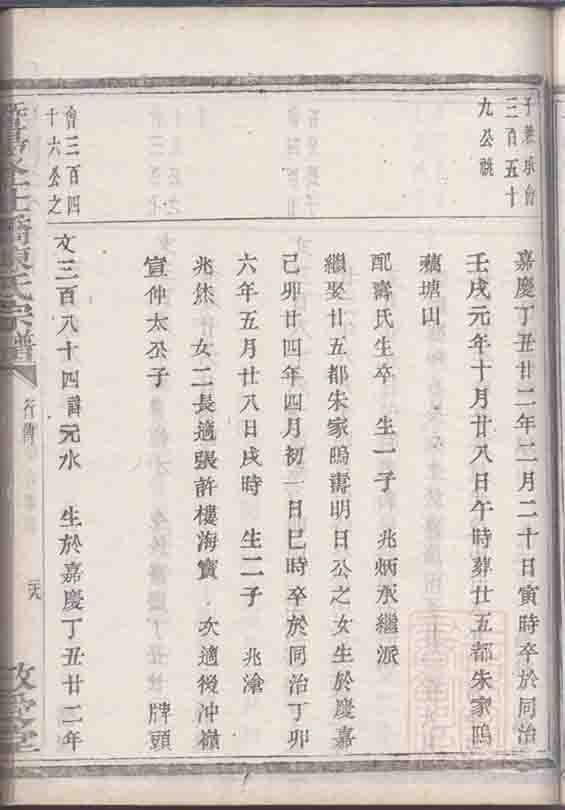 子兼承會
三百五十
九公祧
會三百四
十六公之
嘉慶丁丑廿二年二月二十日寅時卒於同治
壬戌元年十月廿八日午時葬廿五都朱家隖
塘山
配壽氏生卒 生一子 兆炳承繼派
繼娶廿五都朱家隖壽明日公之女生於慶嘉
己卯廿四年四月初一日巳時卒於同治丁卯
六年五月廿八日戌時 生二子 兆滄
兆烋 女二長適張許樓海寳 次適後冲嶺
宣仲太公子 牌頭
文三百八十四諱元水 生於嘉慶丁丑廿二年
橋陳氏宗譜
行傳